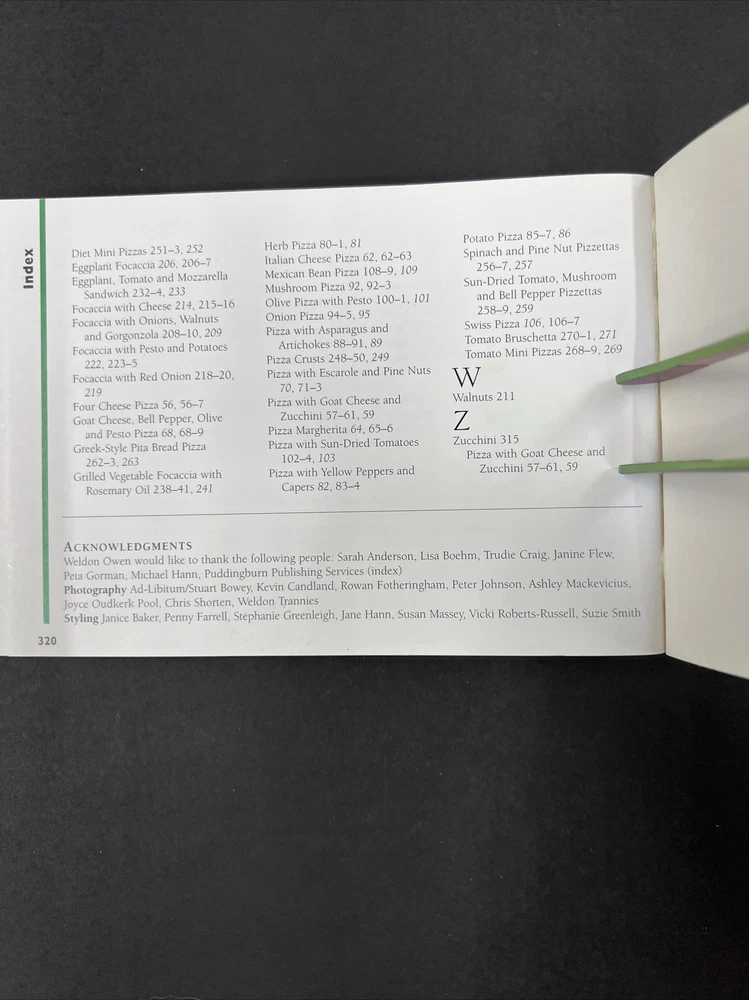 Index
Diet Mini Pizzas 251–3, 252
Eggplant Focaccia 206, 206–7
Eggplant, Tomato and Mozzarella
Sandwich 232–4, 233
Focaccia with Cheese 214, 215–16
Focaccia with Onions, Walnuts
and Gorgonzola 208–10, 209
Focaccia with Pesto and Potatoes
222, 223–5
Focaccia with Red Onion 218–20,
219
Four Cheese Pizza 56, 56–7
Goat Cheese, Bell Pepper, Olive
and Pesto Pizza 68, 68–9
Greek-Style Pita Bread Pizza
262–3, 263
Grilled Vegetable Focaccia with
Rosemary Oil 238–41, 241
Herb Pizza 80–1, 81
Italian Cheese Pizza 62, 62–63
Mexican Bean Pizza 108–9, 109
Mushroom Pizza 92, 92–3
Olive Pizza with Pesto 100–1, 101
Onion Pizza 94–5, 95
Pizza with Asparagus and
Artichokes 88–91, 89
Pizza Crusts 248–50, 249
Pizza with Escarole and Pine Nuts
70, 71–3
Pizza with Goat Cheese and
Zucchini 57–61, 59
Pizza Margherita 64, 65–6
Pizza with Sun-Dried Tomatoes
102–4, 103
Pizza with Yellow Peppers and
Capers 82, 83–4
Potato Pizza 85–7, 86
Spinach and Pine Nut Pizzettas
256–7, 257
Sun-Dried Tomato, Mushroom
and Bell Pepper Pizzettas
258–9, 259
Swiss Pizza 106, 106–7
Tomato Bruschetta 270–1, 271
Tomato Mini Pizzas 268–9, 269
W
Walnuts 211
Z
Zucchini 315
Pizza with Goat Cheese and
Zucchini 57–61, 59
ACKNOWLEDGMENTS
Weldon Owen would like to thank the following people: Sarah Anderson, Lisa Boehm, Trudie Craig, Janine Flew,
Peta Gorman, Michael Hann, Puddingburn Publishing Services (index)
Photography Ad-Libitum/Stuart Bowey, Kevin Candland, Rowan Fotheringham, Peter Johnson, Ashley Mackevicius,
Joyce Oudkerk Pool, Chris Shorten, Weldon Trannies
Styling Janice Baker, Penny Farrell, Stephanie Greenleigh, Jane Hann, Susan Massey, Vicki Roberts-Russell, Suzie Smith
320